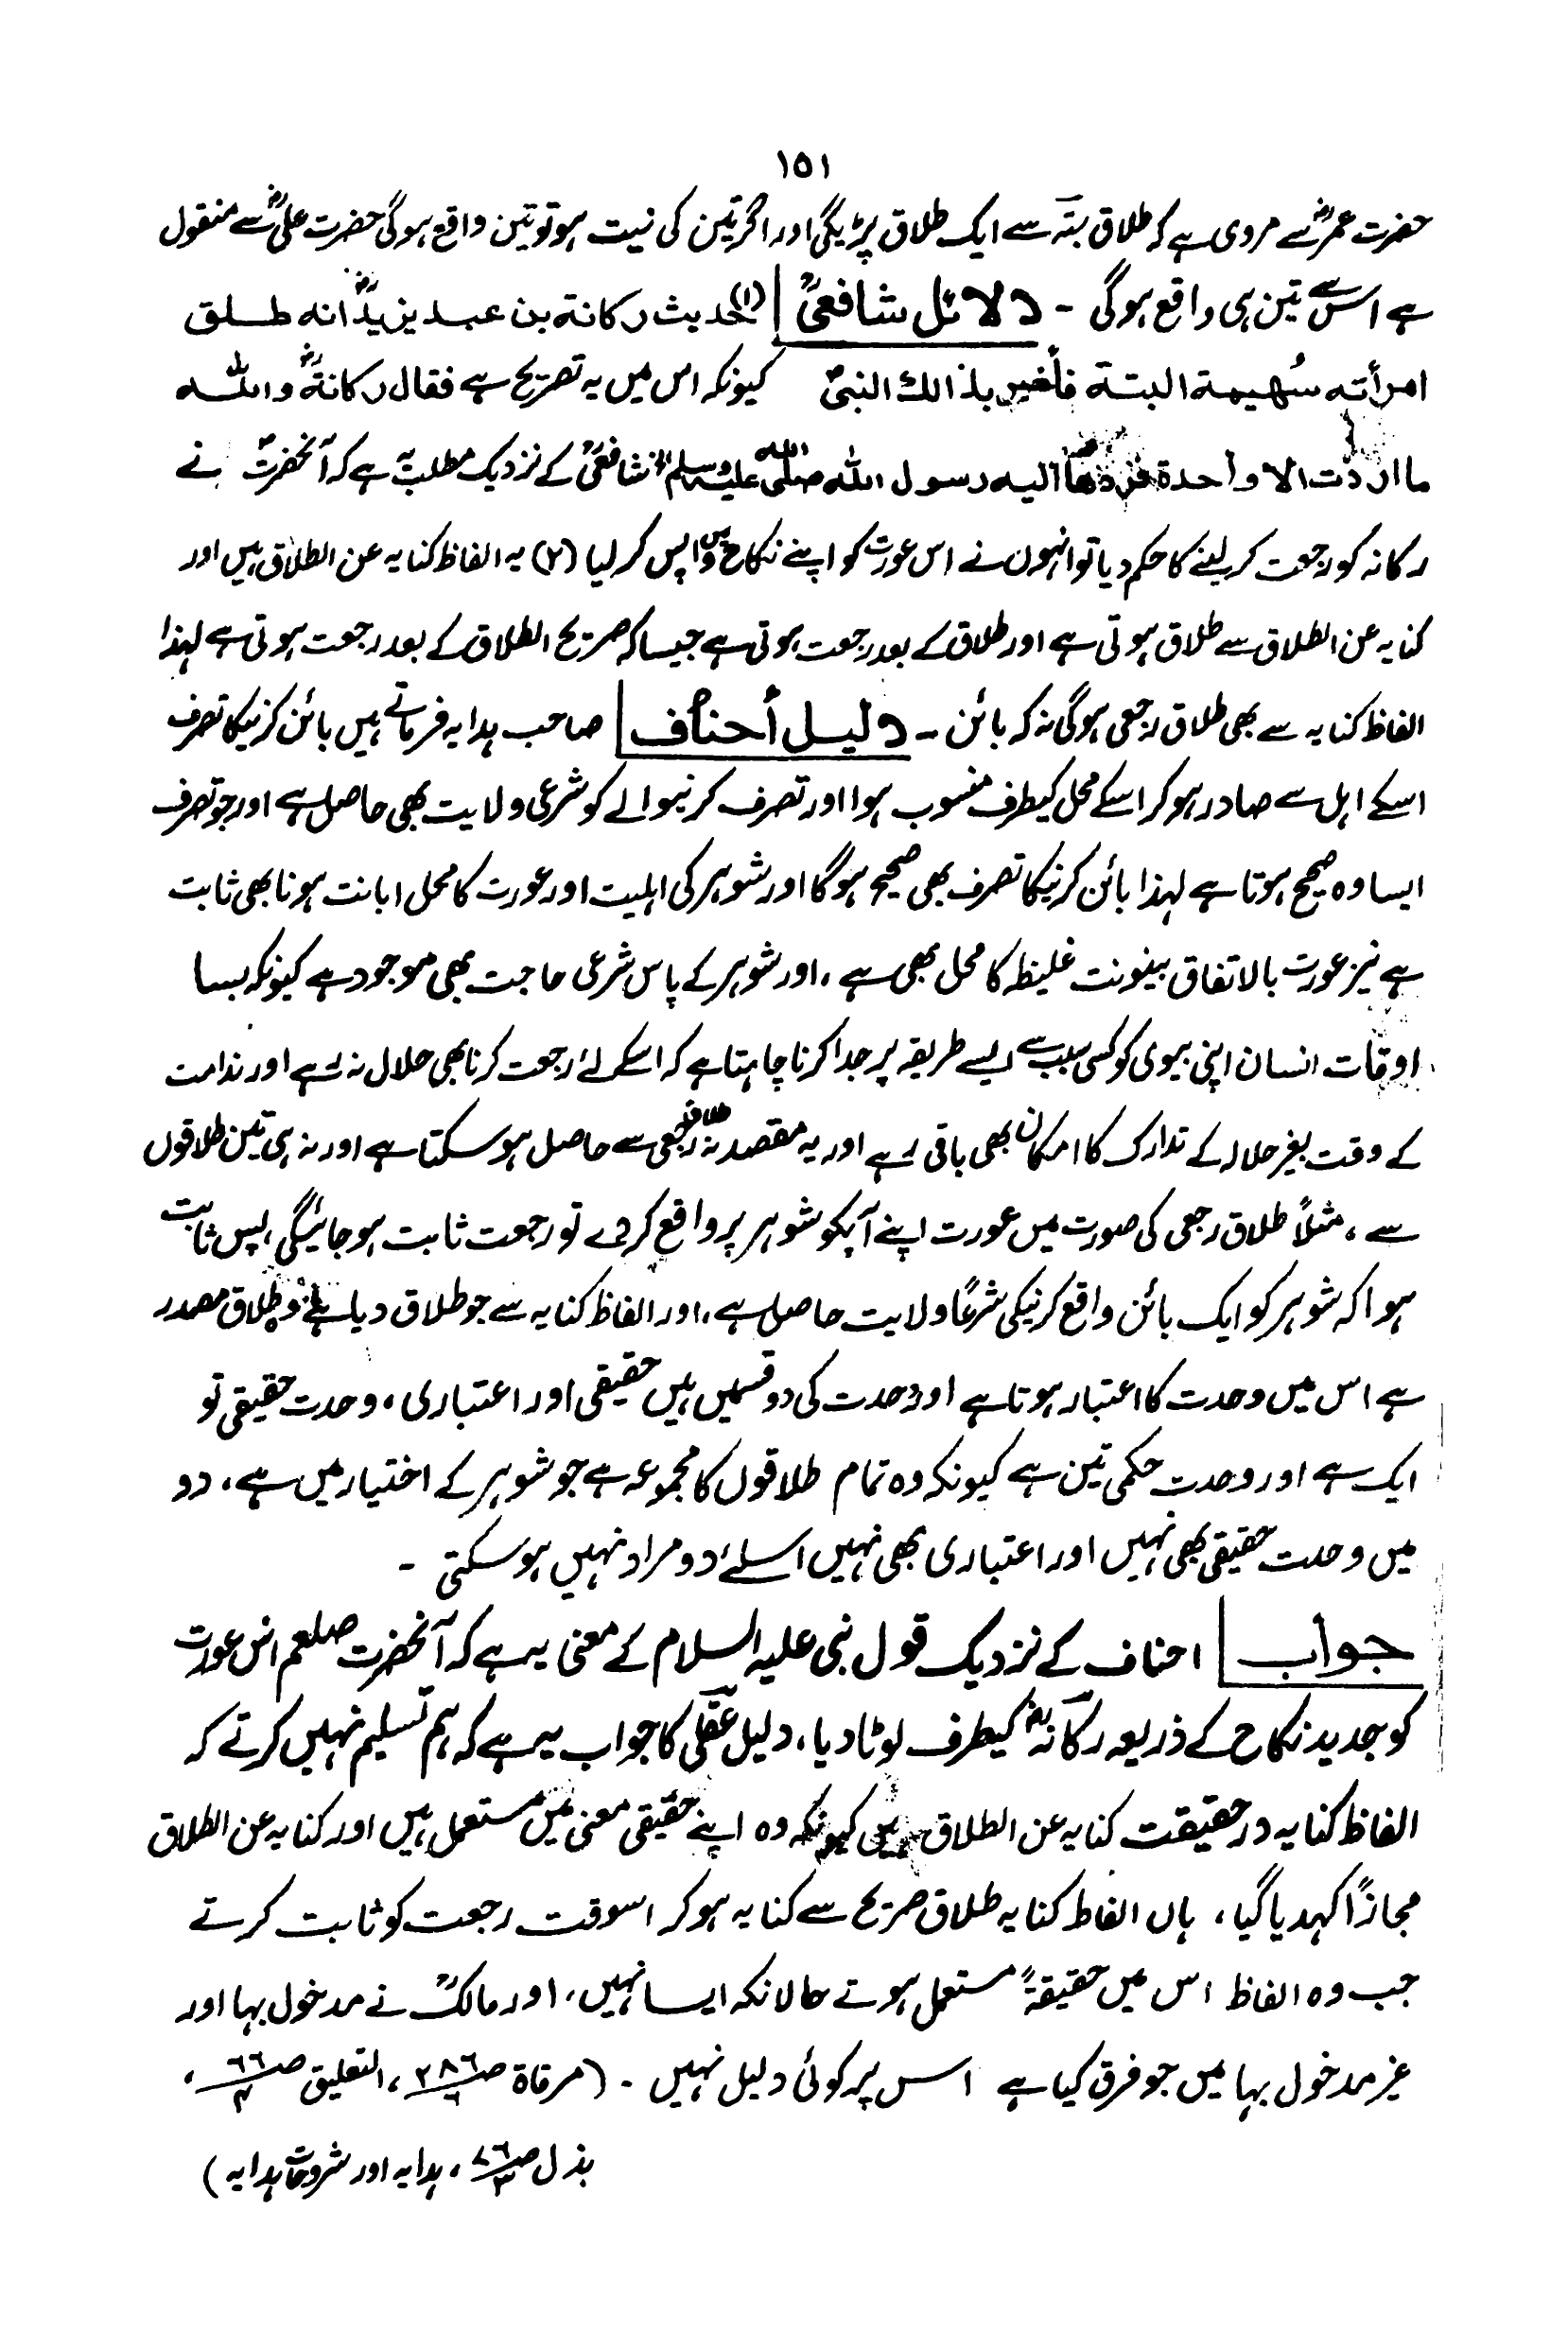 ١٥١
حضرت عمرؓ سے مروی ہے کہ طلاق بتہ سے ایک طلاق پڑیگی اور اگر تین کی نیت ہو تو تین واقع ہوگی حضرت علیؓ سے منقول
ہے اس سے تین ہی واقع ہوگی ۔ دلائل شافعیؒ (۱) حدیث رکانة بن عبد یزیدؓ انه طلق
امرأته سُهيمة البتة فأخبر بذالك النبیؐ کیونکہ اس میں یہ تصریح ہے فقال رکانةؓ واللہ
ما اردت الا واحدة فردها اليه رسول الله صلی الله علیہ وسلم الخ شافعیؒ کے نزدیک مطلب یہ ہے کہ آنحضرتؐ نے
رکانہ کو رجعت کر لینے کا حکم دیا تو انہوں نے اس عورت کو اپنے نکاح میں واپس کر لیا (۲) یہ الفاظ کنایہ عن الطلاق ہیں اور
کنایہ عن الطلاق سے طلاق ہوتی ہے اور طلاق کے بعد رجعت ہوتی ہے جیسا کہ صریح الطلاق کے بعد رجعت ہوتی ہے لہذا
الفاظ کنایہ سے بھی طلاق رجعی ہوگی نہ کہ بائن ۔ دلیل أحناف صاحب ہدایہ فرماتے ہیں بائن کرنیکا تصرف
اسکے اہل سے صادر ہو کر اسکے محل کیطرف منسوب ہوا اور تصرف کرنیوالے کو شرعی ولایت بھی حاصل ہے اور جو تصرف
ایسا وہ صحیح ہوتا ہے لہذا بائن کرنیکا تصرف بھی صحیح ہوگا اور شوہر کی اہلیت اور عورت کا محل ابانت ہونا بھی ثابت
ہے نیز عورت بالاتفاق بینونت غلیظہ کا محل بھی ہے ، اور شوہر کے پاس شرعی حاجت بھی موجود ہے کیونکہ بسا
اوقات انسان اپنی بیوی کو کسی سبب سے ایسے طریقہ پر جدا کرنا چاہتا ہے کہ اسکے لئے رجعت کرنا بھی حلال نہ رہے اور ندامت
کے وقت بغیر حلالہ کے تدارک کا امکان بھی باقی رہے اور یہ مقصد نہ طلاق رجعی سے حاصل ہو سکتا ہے اور نہ ہی تین طلاقوں
سے ، مثلاً طلاق رجعی کی صورت میں عورت اپنے آپکو شوہر پر واقع کر دے تو رجعت ثابت ہو جائیگی ، پس ثابت
ہوا کہ شوہر کو ایک بائن واقع کرنیکی شرعاً ولایت حاصل ہے ، اور الفاظ کنایہ سے جو طلاق دیا جائے وہ طلاق مصدر
ہے اس میں وحدت کا اعتبار ہوتا ہے اور وحدت کی دو قسمیں ہیں حقیقی اور اعتباری ، وحدت حقیقی تو
ایک ہے اور وحدت حکمی تین ہے کیونکہ وہ تمام طلاقوں کا مجموعہ ہے جو شوہر کے اختیار میں ہے ، دو
میں وحدت حقیقی بھی نہیں اور اعتباری بھی نہیں اسلئے دو مراد نہیں ہو سکتی ۔
جواب احناف کے نزدیک قول نبی علیہ السلام کے معنی یہ ہے کہ آنحضرت صلعم اس عورت
کو جدید نکاح کے ذریعہ رکانہؓ کیطرف لوٹا دیا ، دلیل عقلی کا جواب یہ ہے کہ ہم تسلیم نہیں کرتے کہ
الفاظ کنایہ در حقیقت کنایہ عن الطلاق ہیں کیونکہ وہ اپنے حقیقی معنی میں مستعمل ہیں اور کنایہ عن الطلاق
مجازاً کہدیا گیا ، ہاں الفاظ کنایہ طلاق صریح سے کنایہ ہو کر اسوقت رجعت کو ثابت کرتے
جب وہ الفاظ اس میں حقیقةً مستعمل ہوتے حالانکہ ایسا نہیں ، اور مالکؒ نے مدخول بہا اور
غیر مدخول بہا میں جو فرق کیا ہے اس پر کوئی دلیل نہیں ۔ (مرقاة ص ٢٨٦/٦ ، التعلیق ص ٦٦/٤ ،
بذل ص ٧٦/٣ ، ہدایہ اور شروحات ہدایہ)